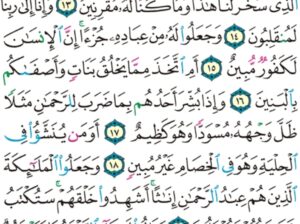 ٱلَّذِي سَخَّرَ لَنَا هَٰذَا وَمَا كُنَّا لَهُۥ مُقۡرِنِينَ ١٣ وَإِنَّآ إِلَىٰ رَبِّنَا
لَمُنقَلِبُونَ ١٤ وَجَعَلُواْ لَهُۥ مِنۡ عِبَادِهِۦ جُزۡءًاۚ إِنَّ ٱلۡإِنسَٰنَ
لَكَفُورٞ مُّبِينٌ ١٥ أَمِ ٱتَّخَذَ مِمَّا يَخۡلُقُ بَنَاتٖ وَأَصۡفَىٰكُم
بِٱلۡبَنِينَ ١٦ وَإِذَا بُشِّرَ أَحَدُهُم بِمَا ضَرَبَ لِلرَّحۡمَٰنِ مَثَلٗا
ظَلَّ وَجۡهُهُۥ مُسۡوَدّٗا وَهُوَ كَظِيمٌ ١٧ أَوَمَن يُنَشَّؤُاْ فِي
ٱلۡحِلۡيَةِ وَهُوَ فِي ٱلۡخِصَامِ غَيۡرُ مُبِينٖ ١٨ وَجَعَلُواْ ٱلۡمَلَٰٓئِكَةَ
ٱلَّذِينَ هُمۡ عِبَٰدُ ٱلرَّحۡمَٰنِ إِنَٰثًاۚ أَشَهِدُواْ خَلۡقَهُمۡۚ سَتُكۡتَبُ